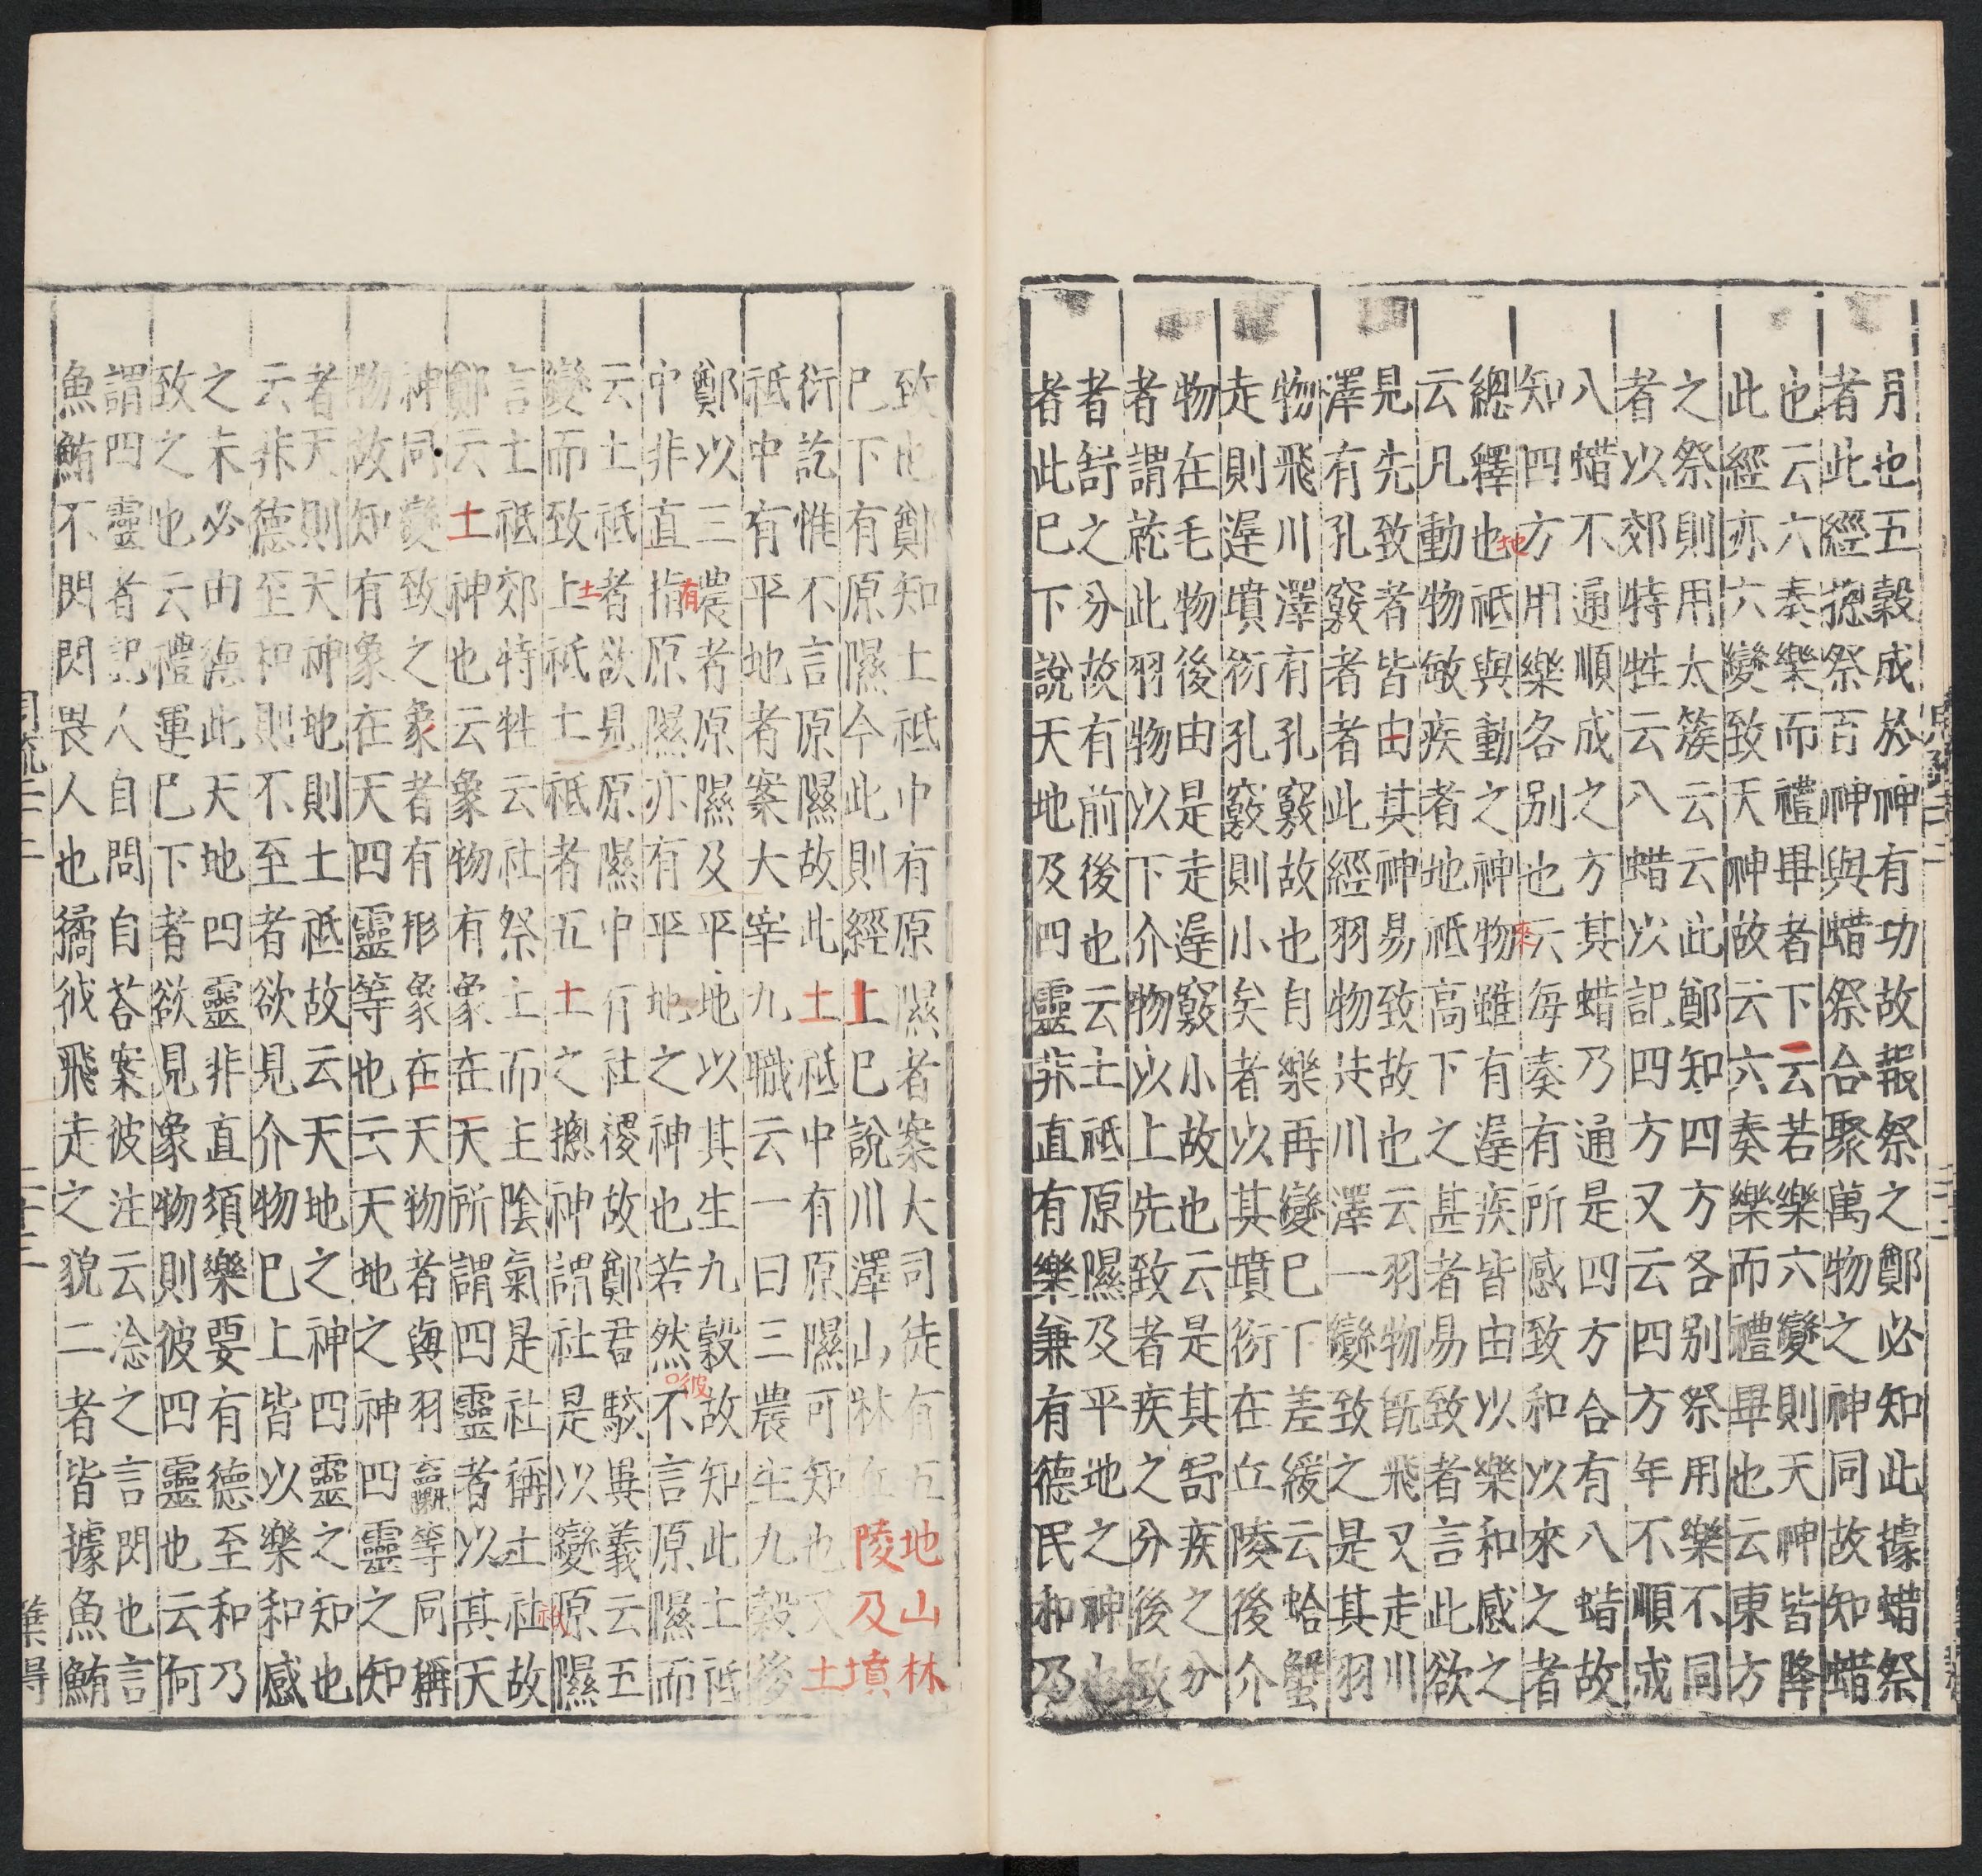 月也五穀成於神有功故報祭之鄭必知此據蜡祭
者此經揔祭百神與蜡祭合聚萬物之神同故知蜡
也云六奏樂而禮畢者下云若樂六變則天神皆降
此經亦六變致天神故云六奏樂而禮畢也云東方
之祭則用太簇云云此鄭知四方各别祭用樂不同
者以郊特牲云八蜡以記四方又云四方年不順成
八蜡不通順成之方其蜡乃通是四方合有八蜡故
知四方用樂各别也云每奏有所感致和以來之者
總釋也地祗與動之神物雖有遟疾皆由以樂和感之
云凡動物敏疾者地祗高下之甚者易致者言此欲
見先致者皆由其神易致故也云羽物既飛又走川
澤有孔竅者者此經羽物共川澤一變致之是其羽
物飛川澤有孔竅故也自樂再變巳下差緩云蛤蟹
走則遟墳衍孔竅則小矣者以其墳衍在丘陵後介
物在毛物後由是走遟竅小故也云是其舒疾之分
者謂就此羽物以下介物以上先致者疾之分後致
者舒之分故有前後也云土祗原隰及平地之神也
者此巳下說天地及四靈非直有樂兼有德民和乃
致也鄭知土祗中有原隰者案大司徒有五地山林
巳下有原隰今此則經土巳說川澤山林丘陵及墳
衍訖惟不言原隰故此土祗中有原隰可知也又土
祗中有平地者案大宰九職云一曰三農生九穀後
鄭以三農者原隰及平地以其生九穀故知此土祗
中非直有指原隰亦有平地之神也若然不言原隰而
云土祗者欲見原隰中有社稷故鄭君駁異義云五
變而致土上祗土祗者五土之揔神謂社是以變原隰
言土祗郊特牲云社祭土而主陰氣是社稱土社故
鄭云土神也云象物有象在天所謂四靈者以其天
神同變致之象者有形象在天物者與羽蠃等同稱
物故知有象在天四靈等也云天地之神四靈之知
者天則天神地則土祗故云天地之神四靈之知也
云非德至和則不至者欲見介物巳上皆以樂和感
之未必由德此天地四靈非直須樂要有德至和乃
致之也云禮運巳下者欲見象物則彼四靈也云何
謂四靈者記人自問自荅案彼注云淰之言閃也言
魚鮪不閃閃畏人也獝狘飛走之貌二者皆據魚鮪